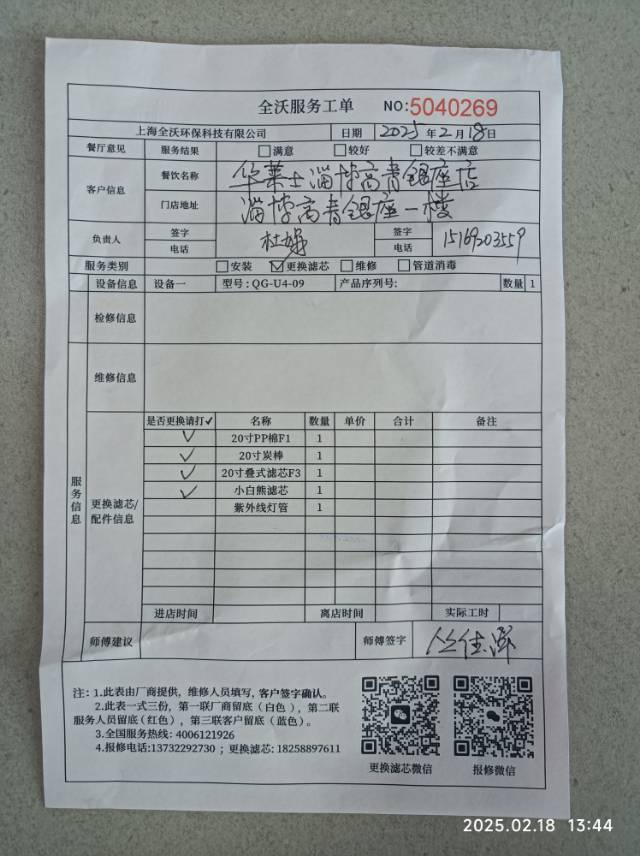 全沃服务工单 NO:5040269
上海全沃环保科技有限公司 日期 2025 年 2 月 18 日
餐厅意见 服务结果 满意 较好 较差不满意
客户信息 餐饮名称 华莱士淄博高青银座店
门店地址 淄博高青银座一楼
负责人 签字 杜娟 签字 15169203559
电话 电话
服务类别 安装 更换滤芯 维修 管道消毒
设备信息 设备一 型号:QG-U4-09 产品序列号: 数量 1
检修信息
维修信息
服务信息
更换滤芯/配件信息
是否更换请打✓ 名称 数量 单价 合计 备注
✓ 20寸PP棉F1 1
✓ 20寸炭棒 1
✓ 20寸叠式滤芯F3 1
✓ 小白熊滤芯 1
紫外线灯管 1
进店时间 离店时间 实际工时
师傅建议 师傅签字
注: 1.此表由厂商提供，维修人员填写，客户签字确认。
2.此表一式三份，第一联厂商留底（白色），第二联
服务人员留底(红色），第三联客户留底（蓝色）。
3.全国服务热线: 4006121926
4.报修电话:13732292730；更换滤芯: 18258897611
更换滤芯微信 报修微信
2025.02.18 13:44